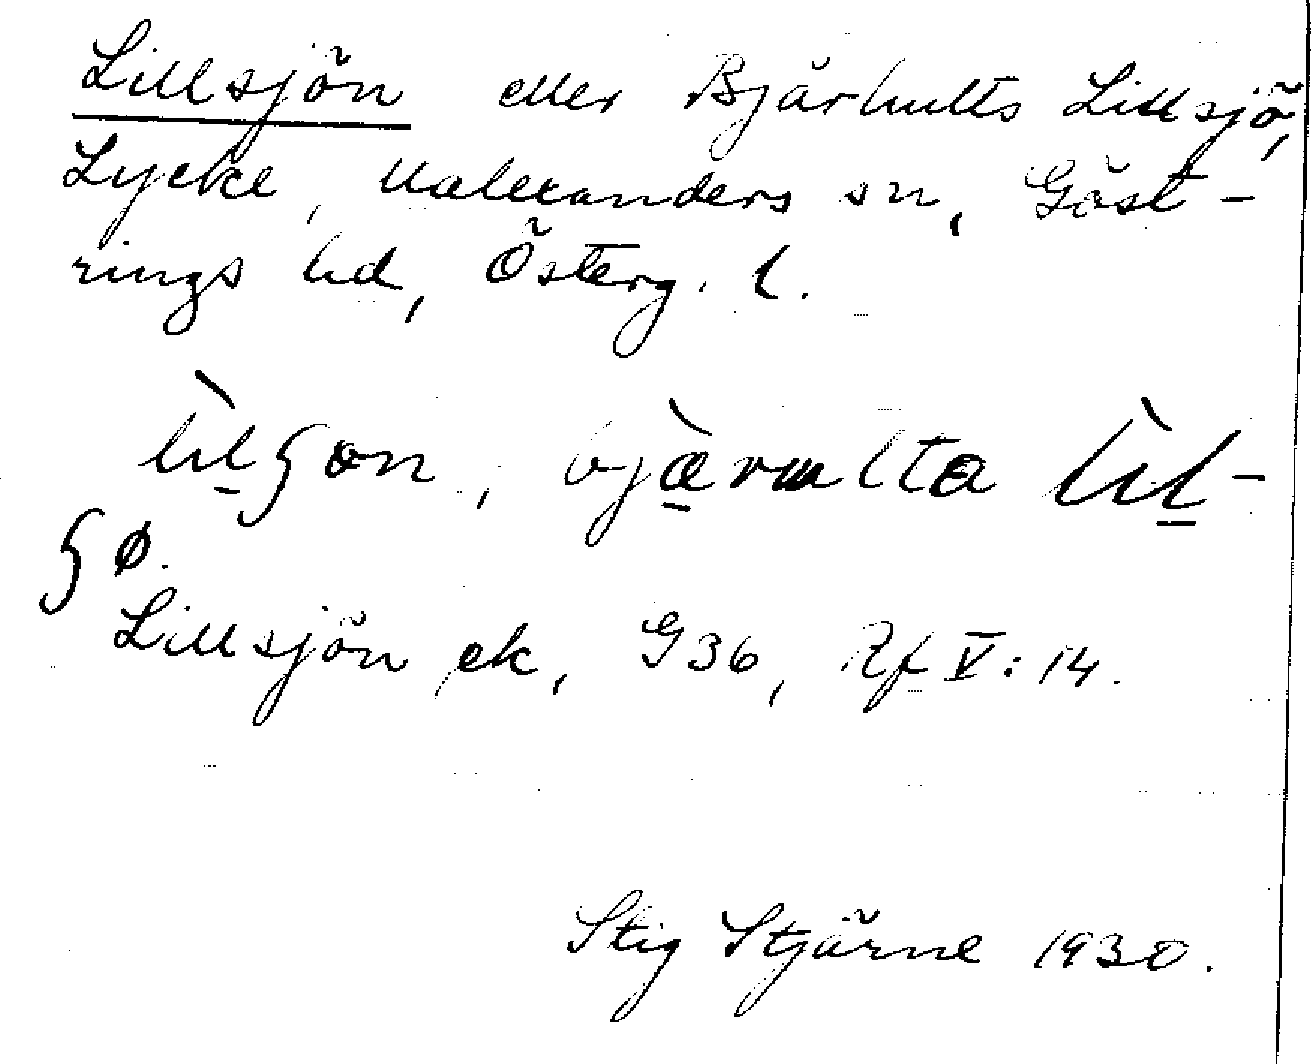 Lillsjön eller Bjärhults Lillsjö,
Lycke, Malexanders sn, Göst-
rings hd, Österg. l.
lìlʃɵn, bjæ̀rulta lìl-
ʃø.
Lillsjön ek, G36, Rf V: 14.
Stig Stjärne 1930.